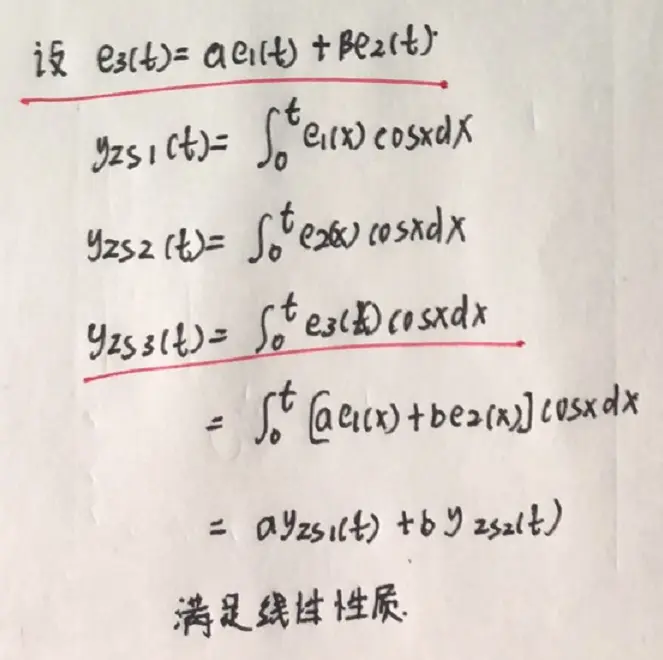 设 e₃(t)= ae₁(t) + βe₂(t).
yzs₁(t)= ∫₀ᵗ e₁(x) cosxdx
yzs₂(t)= ∫₀ᵗ e₂(x) cosxdx
yzs₃(t)= ∫₀ᵗ e₃(x) cosxdx
= ∫₀ᵗ [ae₁(x) + be₂(x)] cosxdx
= ayzs₁(t) + by zs₂(t)
满足线性性质.